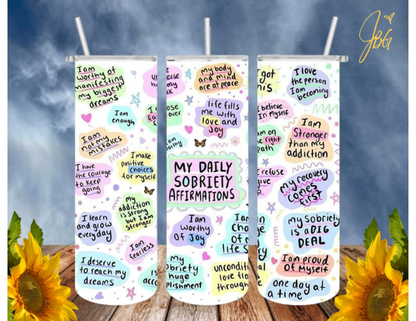 JBG
I am
worthy of
manifesting
my biggest
dreams
I am
enough
I am
not my
mistakes
I make
positive
choices
for myself
I have
the courage
to keep
going
my
addiction
is strong
but I am
stronger
I learn
and grow
everyday
I am
fearless
I deserve
to reach my
dreams
my body
and mind
are at peace
over
life fills
me with
love and
joy
MY DAILY
SOBRIETY
AFFIRMATIONS
I am
worthy
of Joy
I am in
change
of my
life
my
huge
unconditional
love
through
got
this
I love
the person
I am
becoming
I believe
in Myself
I am
Stronger
than my
addiction
on the
right
path
refuse
give
my recovery
comes
first
my Sobriety
is a BIG
DEAL
I am proud
of Myself
one day
at a time